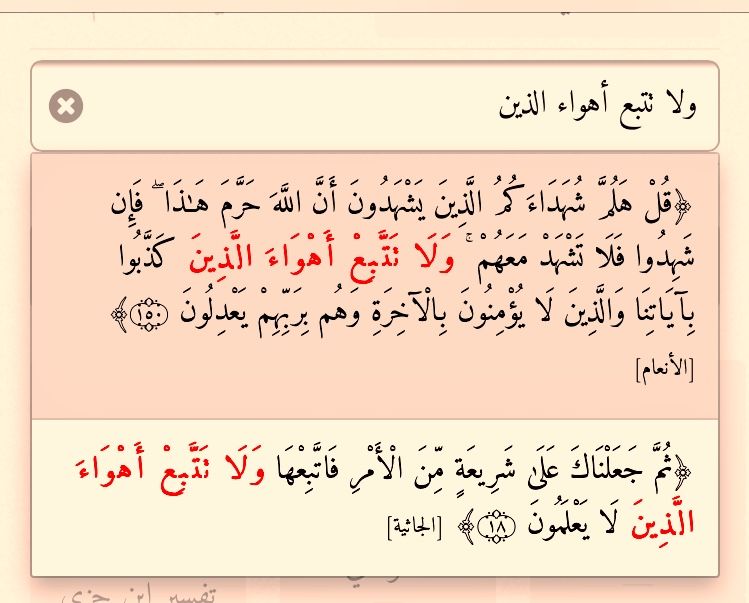 ولا تتبع أهواء الذين
﴿قُلْ هَلُمَّ شُهَدَاءَكُمُ الَّذِينَ يَشْهَدُونَ أَنَّ اللَّهَ حَرَّمَ هَـٰذَا ۖ فَإِن
شَهِدُوا فَلَا تَشْهَدْ مَعَهُمْ ۚ وَلَا تَتَّبِعْ أَهْوَاءَ الَّذِينَ كَذَّبُوا
بِآيَاتِنَا وَالَّذِينَ لَا يُؤْمِنُونَ بِالْآخِرَةِ وَهُم بِرَبِّهِمْ يَعْدِلُونَ ۝١٥٠﴾
[الأنعام]
﴿ثُمَّ جَعَلْنَاكَ عَلَىٰ شَرِيعَةٍ مِّنَ الْأَمْرِ فَاتَّبِعْهَا وَلَا تَتَّبِعْ أَهْوَاءَ
الَّذِينَ لَا يَعْلَمُونَ ۝١٨﴾ [الجاثية]
تفسير ابن جزي